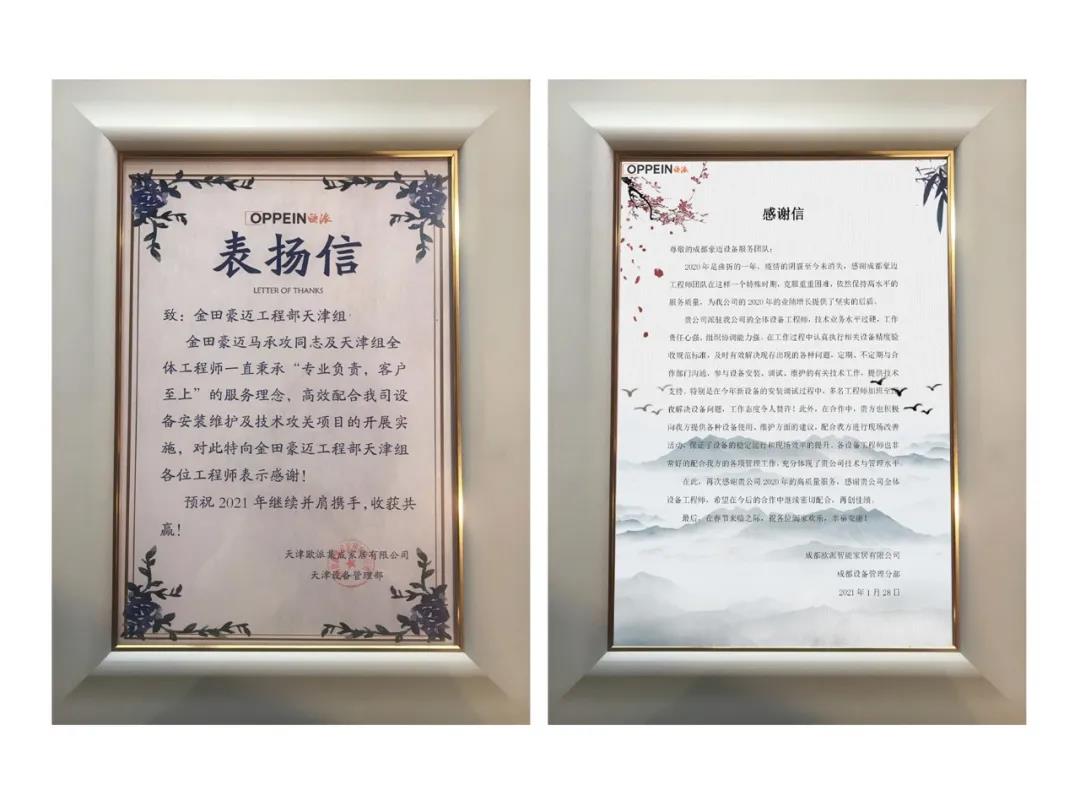 OPPEIN欧派
表扬信
LETTER OF THANKS
致：金田豪迈工程部天津组
金田豪迈马承攻同志及天津组全
体工程师一直秉承“专业负责，客户
至上”的服务理念，高效配合我司设
备安装维护及技术攻关项目的开展实
施，对此特向金田豪迈工程部天津组
各位工程师表示感谢！
预祝2021年继续并肩携手，收获共
赢！
天津欧派集成家居有限公司
天津设备管理部
OPPEIN欧派
感谢信
尊敬的成都豪迈设备服务团队：
2020年是曲折的一年，疫情的阴霾至今未消失，感谢成都豪迈
工程师团队在这样一个特殊时期，克服重重困难，依然保持高水平的
服务质量，为我公司的2020年的业绩增长提供了坚实的后盾。
贵公司派驻我公司的全体设备工程师，技术业务水平过硬，工作
责任心强，组织协调能力强。在工作过程中认真执行相关设备精度验
收规范标准，及时有效解决现存出现的各种问题，定期、不定期与合
作部门沟通，参与设备安装、调试、维护的有关技术工作，提供技术
支持。特别是在今年新设备的安装调试过程中，多名工程师加班至
夜解决设备问题，工作态度令人赞许！此外，在合作中，贵方也积极
向我方提供各种设备使用、维护方面的建议，配合我方进行现场改善
活动，保证了设备的稳定运行和现场效率的提升。各设备工程师也非
常好的配合我方的各项管理工作，充分体现了贵公司技术与管理水平。
在此，再次感谢贵公司2020年的高质量服务，感谢贵公司全体
设备工程师，希望在今后的合作中继续密切配合，再创佳绩。
最后，在春节来临之际，祝各位阖家欢乐，幸福安康！
成都欧派智能家居有限公司
成都设备管理分部
2021年1月28日